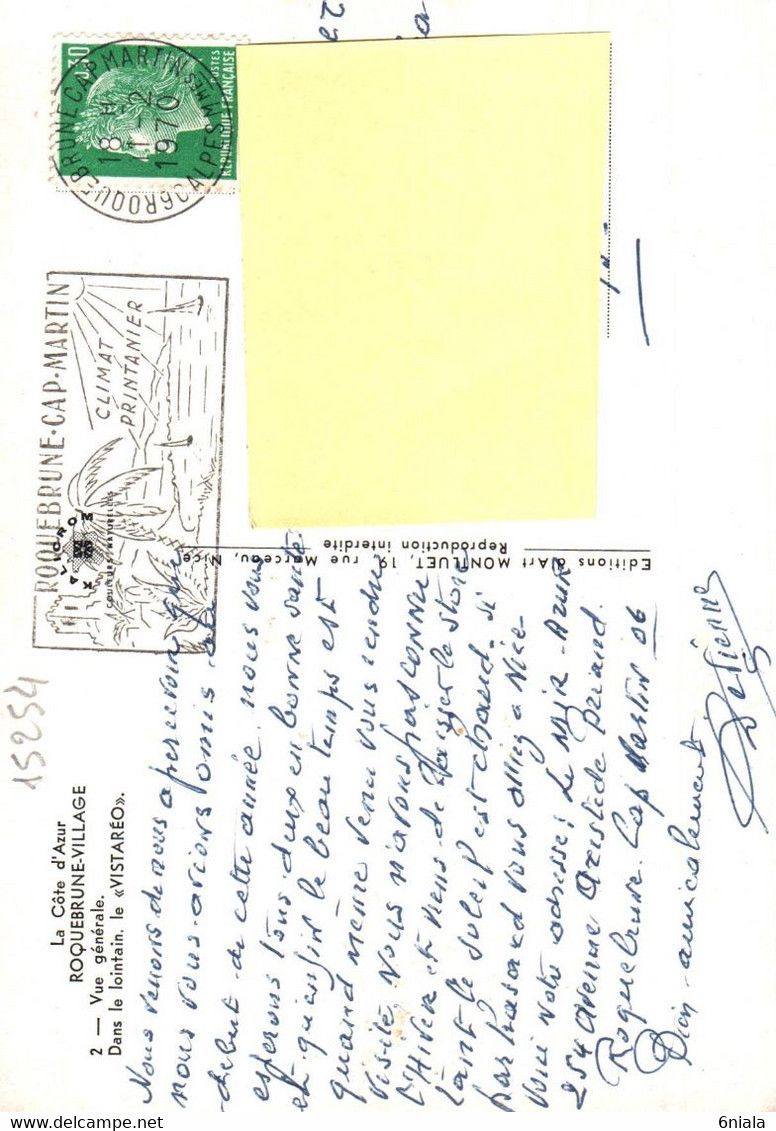 La Côte d'Azur
ROQUEBRUNE-VILLAGE
2 — Vue générale.
Dans le lointain, le «VISTARÉO».
15254
Nous venons de nous apercevoir que
nous vous avions omis au
debut de cette année, nous vous
esperons tous deux en bonne santé
et qu'enfin le beau temps est
quand même venu vous rendre
visite, Nous n'avons pas connu
l'Hiver et viens de baisser le store
tant le soleil est chaud. si
par hasard vous alliez à Nice
voici notre adresse: Le MIR-AZUR
254 Avenue Aristide Briand.
Roquebrune. Cap Martin 06
Bien amicalement
ROQUEBRUNE-CAP-MARTIN
CLIMAT
PRINTANIER
MEXICHROM
COULEURS NATURELLES
Editions d'Art MONTLUET, 19, rue Marceau, Nice
Reproduction interdite
06 ROQUEBRUNE CAP MARTIN
18 H
1-2
1970
ALPES MMES
0,30
POSTES
REPUBLIQUE FRANÇAISE
delcampe.net
6niala